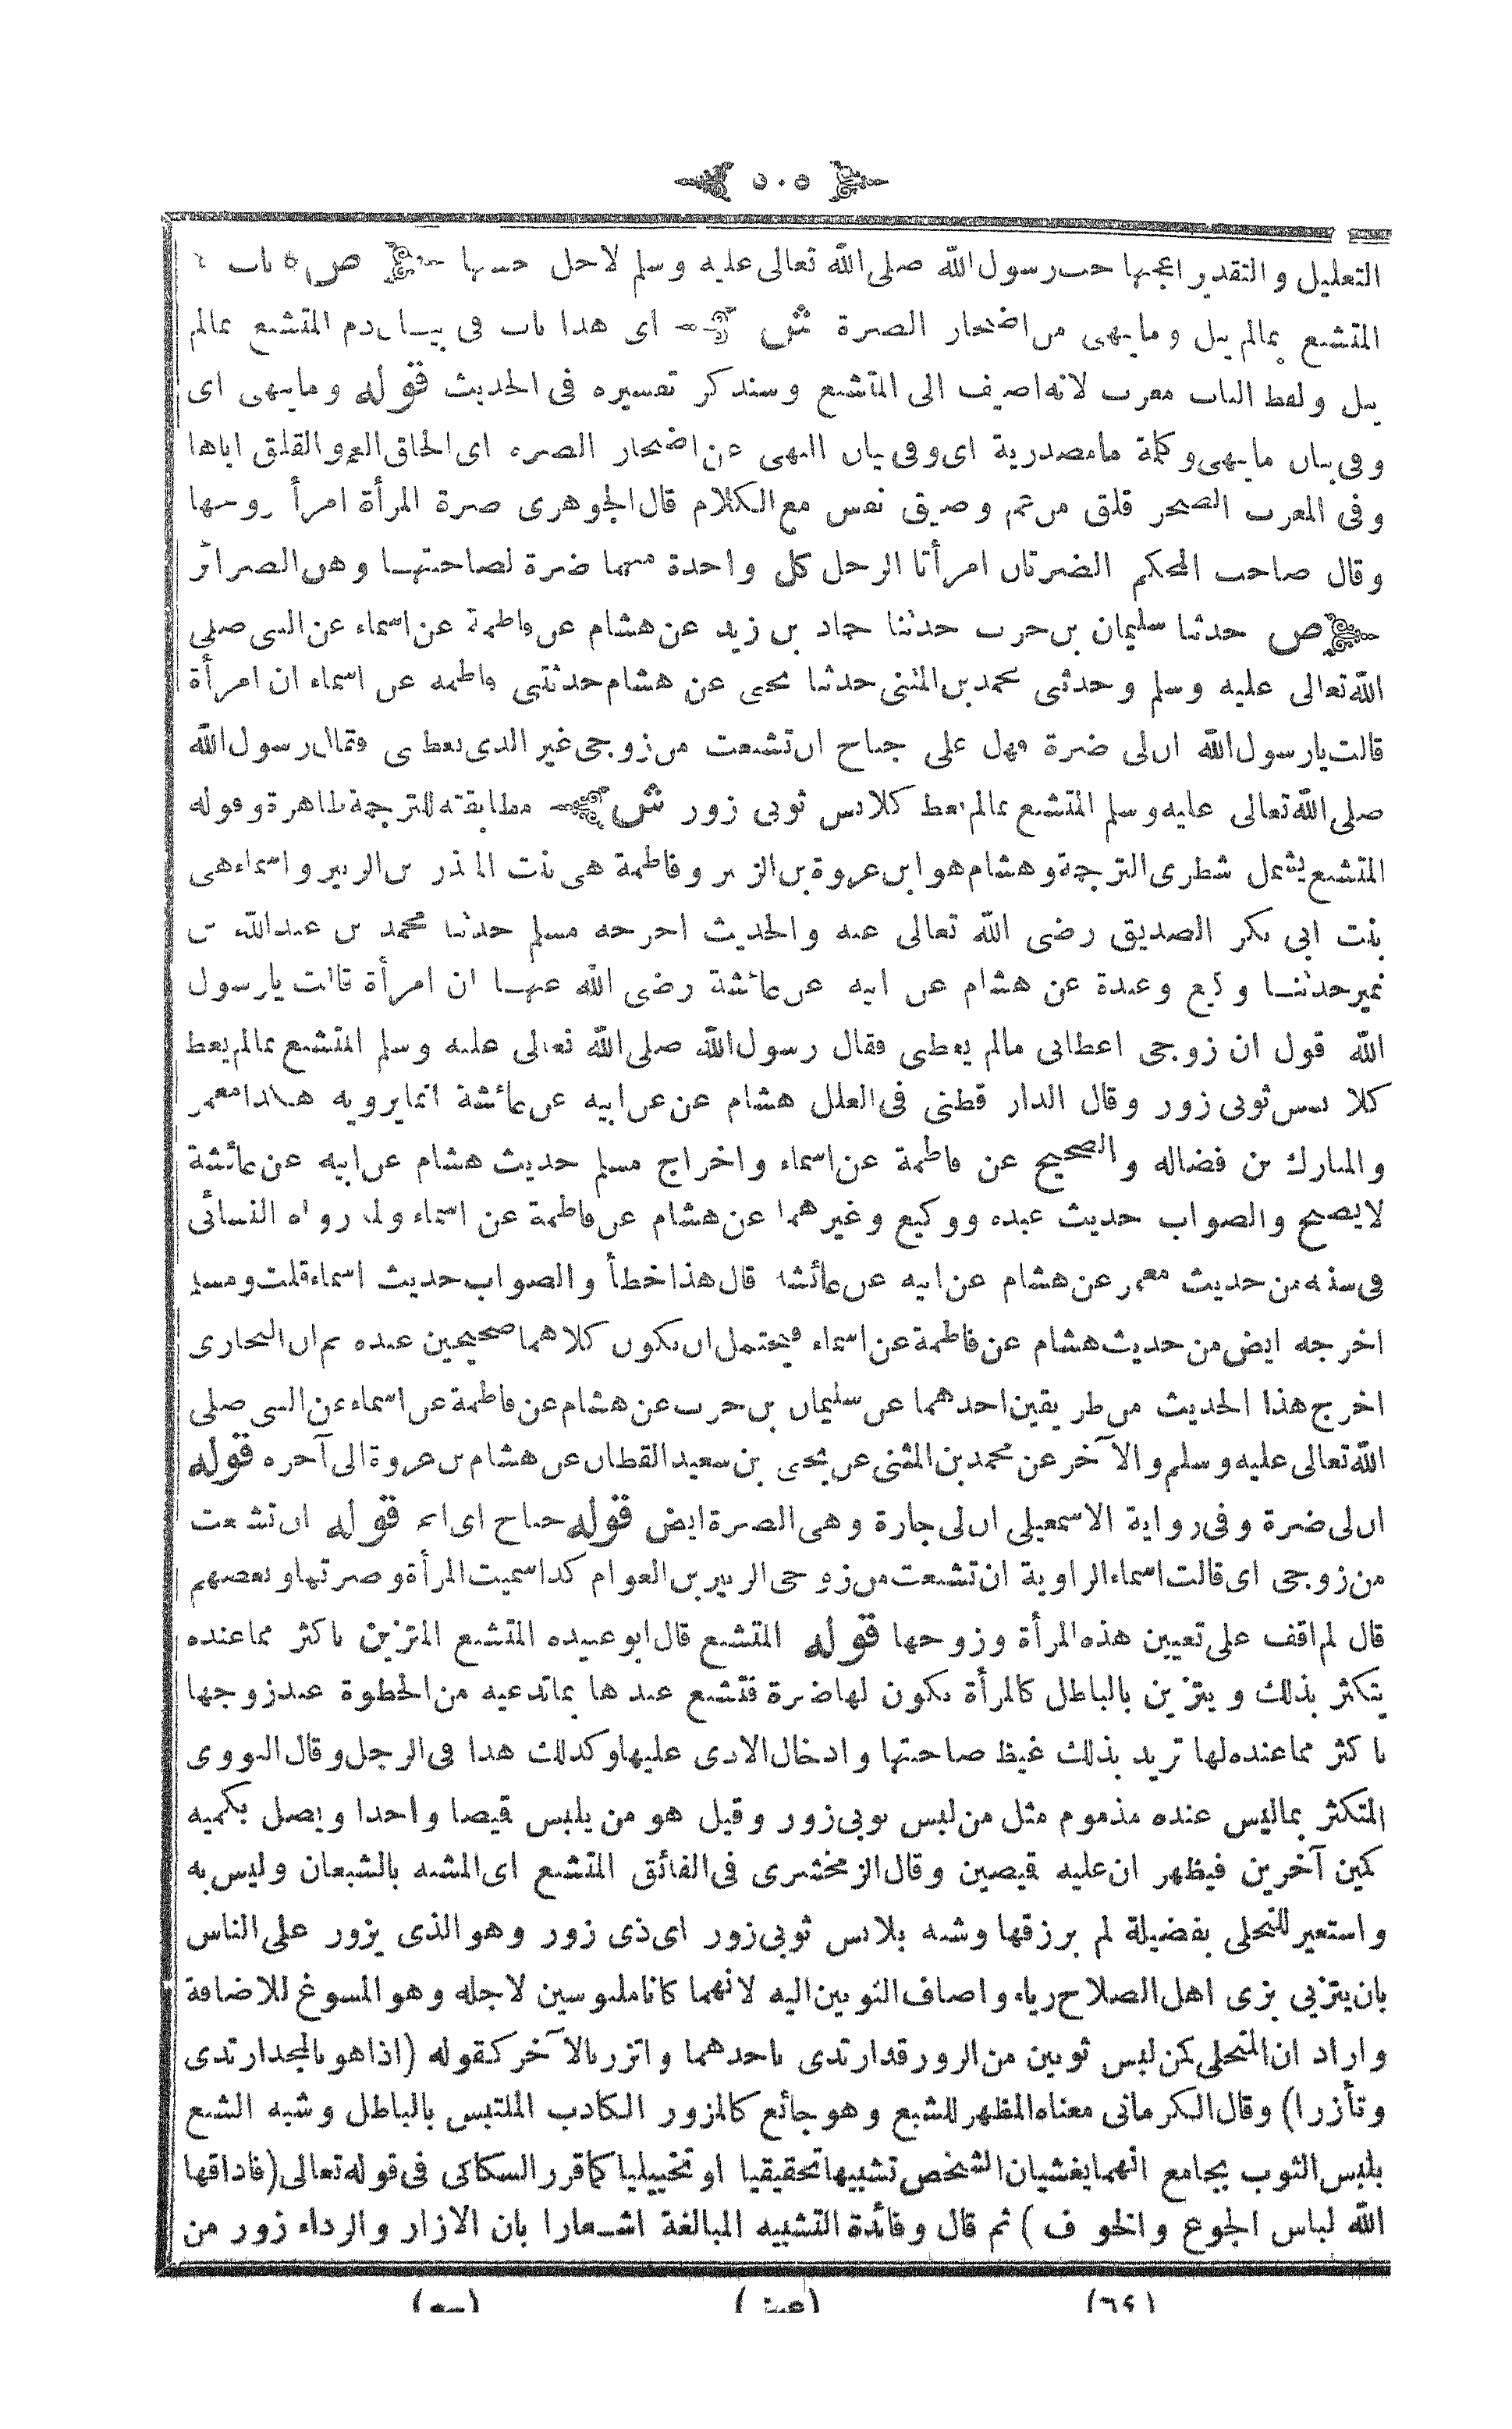 ٥٠٥
التعليل والتقدير اعجبها حب رسول الله صلى الله تعالى عليه وسلم لاجل حسنها ص باب
المتشبع بمالم ينل وما ينهى من افتخار الضرة ش اى هذا باب فى بيان ذم المتشبع بمالم
ينل ولفظ الباب معرب لانه اضيف الى المتشبع وسنذكر تفسيره فى الحديث قوله وما ينهى اى
وفى بيان ما ينهى وكلمة ما مصدرية اى وفى بيان النهى عن اضجار الضرة اى الحاق الغم والقلق اياها
وفى المغرب الضجر قلق من غم وضيق نفس مع الكلام قال الجوهرى ضرة المرأة امرأ زوجها
وقال صاحب المحكم الضرتان امرأتا الرجل كل واحدة منهما ضرة لصاحبتها وهن الضرائر
ص حدثنا سليمان بن حرب حدثنا حماد بن زيد عن هشام عن فاطمة عن اسماء عن النبى صلى
الله تعالى عليه وسلم وحدثنى محمد بن المثنى حدثنا يحيى عن هشام حدثتنى فاطمة عن اسماء ان امرأة
قالت يارسول الله ان لى ضرة فهل على جناح ان تشبعت من زوجى غير الذى يعطينى فقال رسول الله
صلى الله تعالى عليه وسلم المتشبع بمالم يعط كلابس ثوبى زور ش مطابقته للترجمة ظاهرة وقوله
المتشبع يشمل شطرى الترجمة وهشام هو ابن عروة بن الزبير وفاطمة هى بنت المنذر بن الزبير واسماء هى
بنت ابى بكر الصديق رضى الله تعالى عنه والحديث اخرجه مسلم حدثنا محمد بن عبدالله بن
نمير حدثنا وكيع وعبدة عن هشام عن ابيه عن عائشة رضى الله عنها ان امرأة قالت يارسول
الله قول ان زوجى اعطانى مالم يعطنى فقال رسول الله صلى الله تعالى عليه وسلم المتشبع بمالم يعط
كلابس ثوبى زور وقال الدار قطنى فى العلل هشام عن عن ابيه عن عائشة انما يرويه هكذا معمر
والمبارك بن فضاله والصحيح عن فاطمة عن اسماء واخراج مسلم حديث هشام عن ابيه عن عائشة
لايصح والصواب حديث عبده ووكيع وغيرهما عن هشام عن فاطمة عن اسماء ولما رواه النسائى
فى سننه من حديث معمر عن هشام عن ابيه عن عائشة قال هذا خطأ والصواب حديث اسماء قلت ومسلم
اخرجه ايض من حديث هشام عن فاطمة عن اسماء فيحتمل ان يكون كلاهما صحيحين عنده ثم ان البخارى
اخرج هذا الحديث من طريقين احدهما عن سليمان بن حرب عن هشام عن فاطمة عن اسماء عن النبى صلى
الله تعالى عليه وسلم والآخر عن محمد بن المثنى عن يحيى بن سعيد القطان عن هشام بن عروة الى آخره قوله
ان لى ضرة وفى رواية الاسمعيلى ان لى جارة وهى الضرة ايض قوله جناح اى اثم قوله ان تشبعت
من زوجى اى قالت اسماء الراوية ان تشبعت من زوجى الزبير بن العوام كذا سميت المرأة وضرتها وبعضهم
قال لم اقف على تعيين هذه المرأة وزوجها قوله المتشبع قال ابو عبيده المتشبع المتزين باكثر مما عنده
يتكثر بذلك ويتزين بالباطل كالمرأة يكون لها ضرة فتشبع عندها بما تدعيه من الحظوة عند زوجها
باكثر مما عنده لها تريد بذلك غيظ صاحبتها وادخال الاذى عليها وكذلك هذا فى الرجل وقال النووى
المتكثر بماليس عنده مذموم مثل من لبس ثوبى زور وقيل هو من يلبس قيصا واحدا ويصل بكميه
كمين آخرين فيظهر ان عليه قيصين وقال الزمخشرى فى الفائق المتشبع اى المشبه بالشبعان وليس به
واستعير للتحلى بفضيلة لم يرزقها وشبه بلابس ثوبى زور اى ذى زور وهو الذى يزور على الناس
بان يتزيى بزى اهل الصلاح رياء واضاف الثوبين اليه لانهما كانا ملبوسين لاجله وهو المسوغ للاضافة
واراد ان المتحلى كمن لبس ثوبين من الزور قدارتدى باحدهما واتزر بالآخر كقوله (اذاهو بالمجد ارتدى
وتأزرا) وقال الكرمانى معناه المظهر للشبع وهو جائع كالمزور الكاذب الملتبس بالباطل وشبه الشبع
بلبس الثوب بجامع انهما يغشيان الشخص تشبيها تحقيقيا او تخييليا كما قرر السكاكى فى قوله تعالى (فاذاقها
الله لباس الجوع والخوف) ثم قال وفائدة التشبيه المبالغة اشعارا بان الازار والرداء زور من
(٦٤) (عينى)